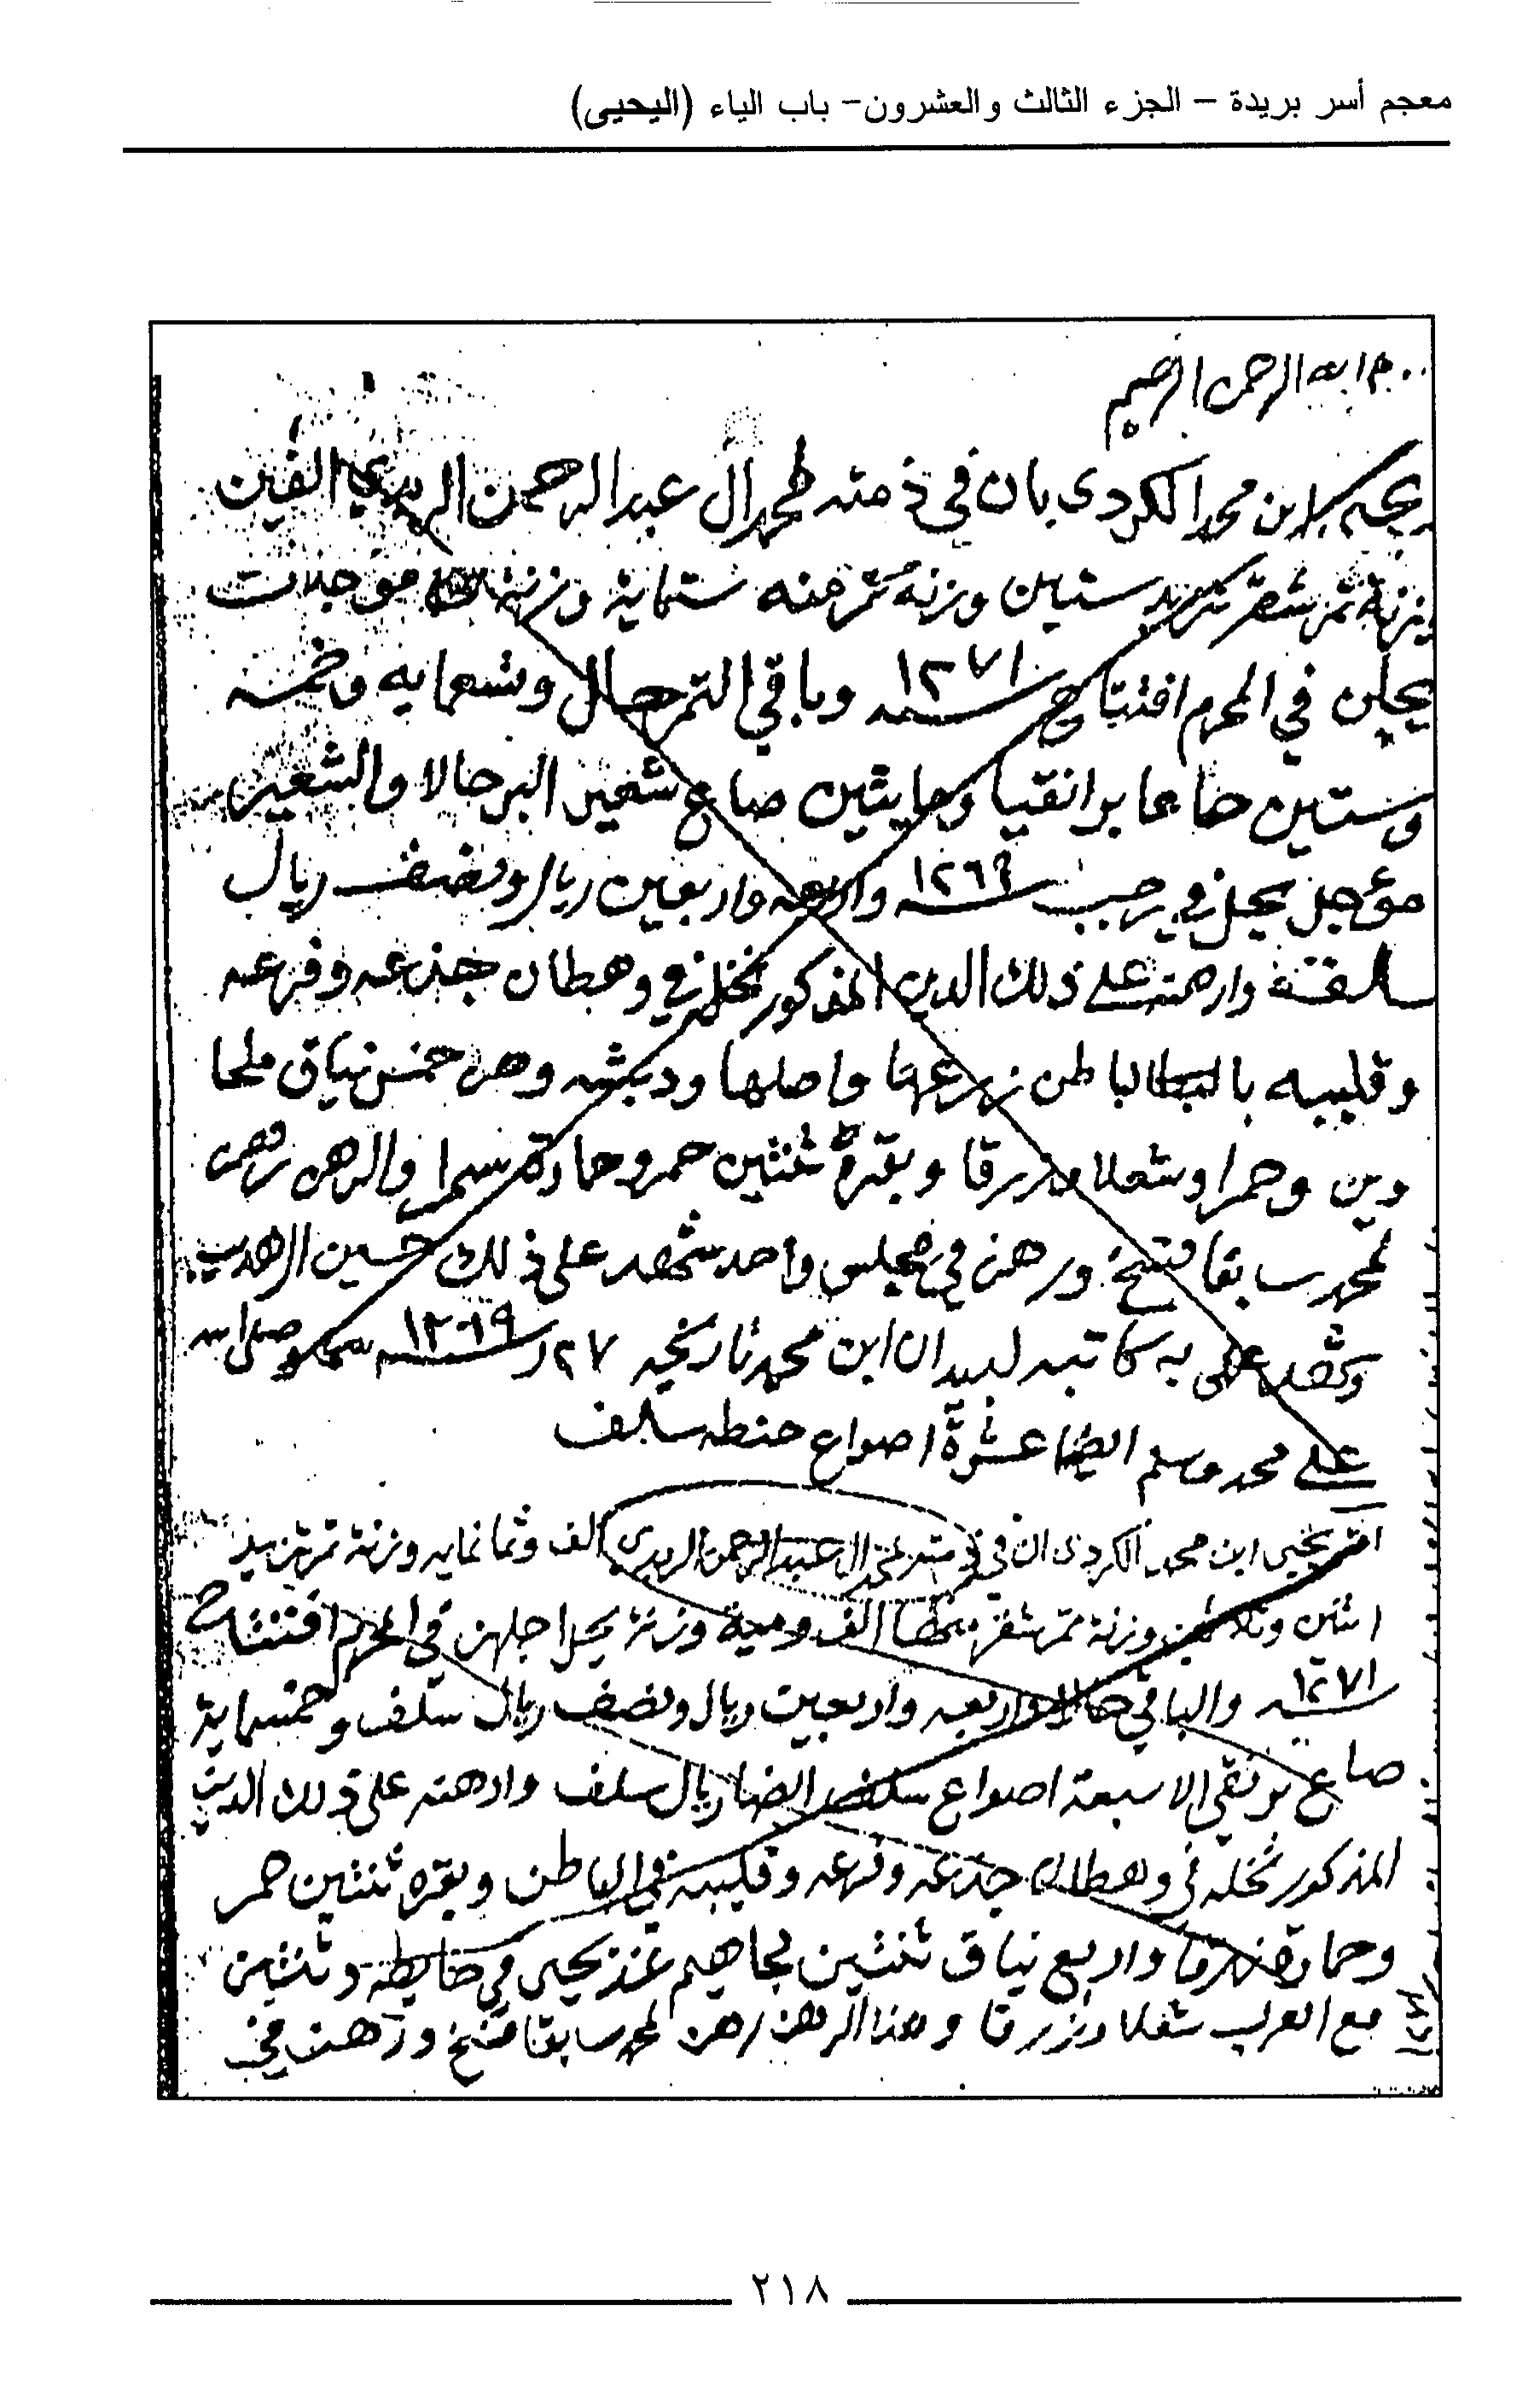 معجم أسر بريدة – الجزء الثالث والعشرون– باب الياء (اليحيى)
الله الرحمن الرحيم
ابن محمد الكردي بان في ذمته لمحمد آل عبد الرحمن الربدي الفين
وزنة تمر شقر تزيد ستين وزنة تمر منه ستماية وزنة مؤجلات
يحلن في المحرم افتتاح سنة ١٢٧١ وباقي التمر حال وتسعمايه وخمسه
وستين صاعا بر انقيا ومايتين صاع شعير البر حالا والشعير
مؤجل يحل في رجب سنة ١٢٦٩ واربعه واربعين ريال ونصف ريال
سالفة وارهنه على ذلك الدين المذكور نخله في وهطان جذعه وفرعه
وقليبه بالباطن زرعها واصلها ودبشه وهن خمس نياق ملحا
وين وحمرا وشعلا وزرقا وبقرة ثنتين حمر وحمارة سمرا والرهن رهن
لمحمد سابقا فتسخ ورهن في مجلس واحد شهد على ذلك حسين الرهيب
وشهد على به كاتبه لبيدان ابن محمد تاريخه ٢٧ ر سنة ١٢٦٩ وصلى الله
على محمد وسلم ايضا عشرة اصواع حنطه سلف
اقر يحيى ابن محمد الكردي ان في ذمته لمحمد ال عبد الرحمن الربدي الف وثمانمايه وزنة تمر تزيد
اثنين وثلاثين وزنة تمر شقر الف ومية وزنة يحل اجلهن في المحرم افتتاح
سنة ١٢٧١ والباقي حال واربعه واربعين ريال ونصف ريال سلف وخمسماية
صاع بر نقي الا سبعة اصواع سلف ايضا ريال سلف وارهنه على ذلك الدين
المذكور نخله في وهطان جذعه وفرعه وقليبه في الباطن وبقره ثنتين حمر
وحمارة زرقا واربع نياق ثنتين مجاهيم عند يحيى في حايطه وثنتين
مع العرب شعلا وزرقا وهذا الرهن رهن لمحمد سابقا فسخ ورهن في
٢١٨